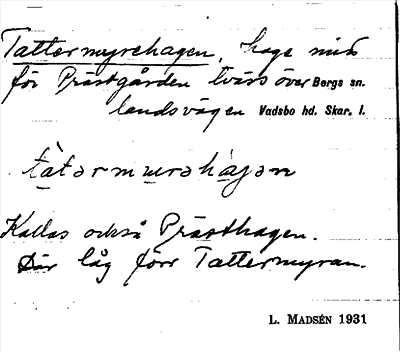 Tattermyrehagen, hage mitt
för Prästgården tvärs över Bergs sn.
landsvägen Vadsbo hd. Skar. l.
tàtərmurəhàgən
Kallas också Prästhagen.
Där låg förr Tattermyran.
L. MADSÉN 1931